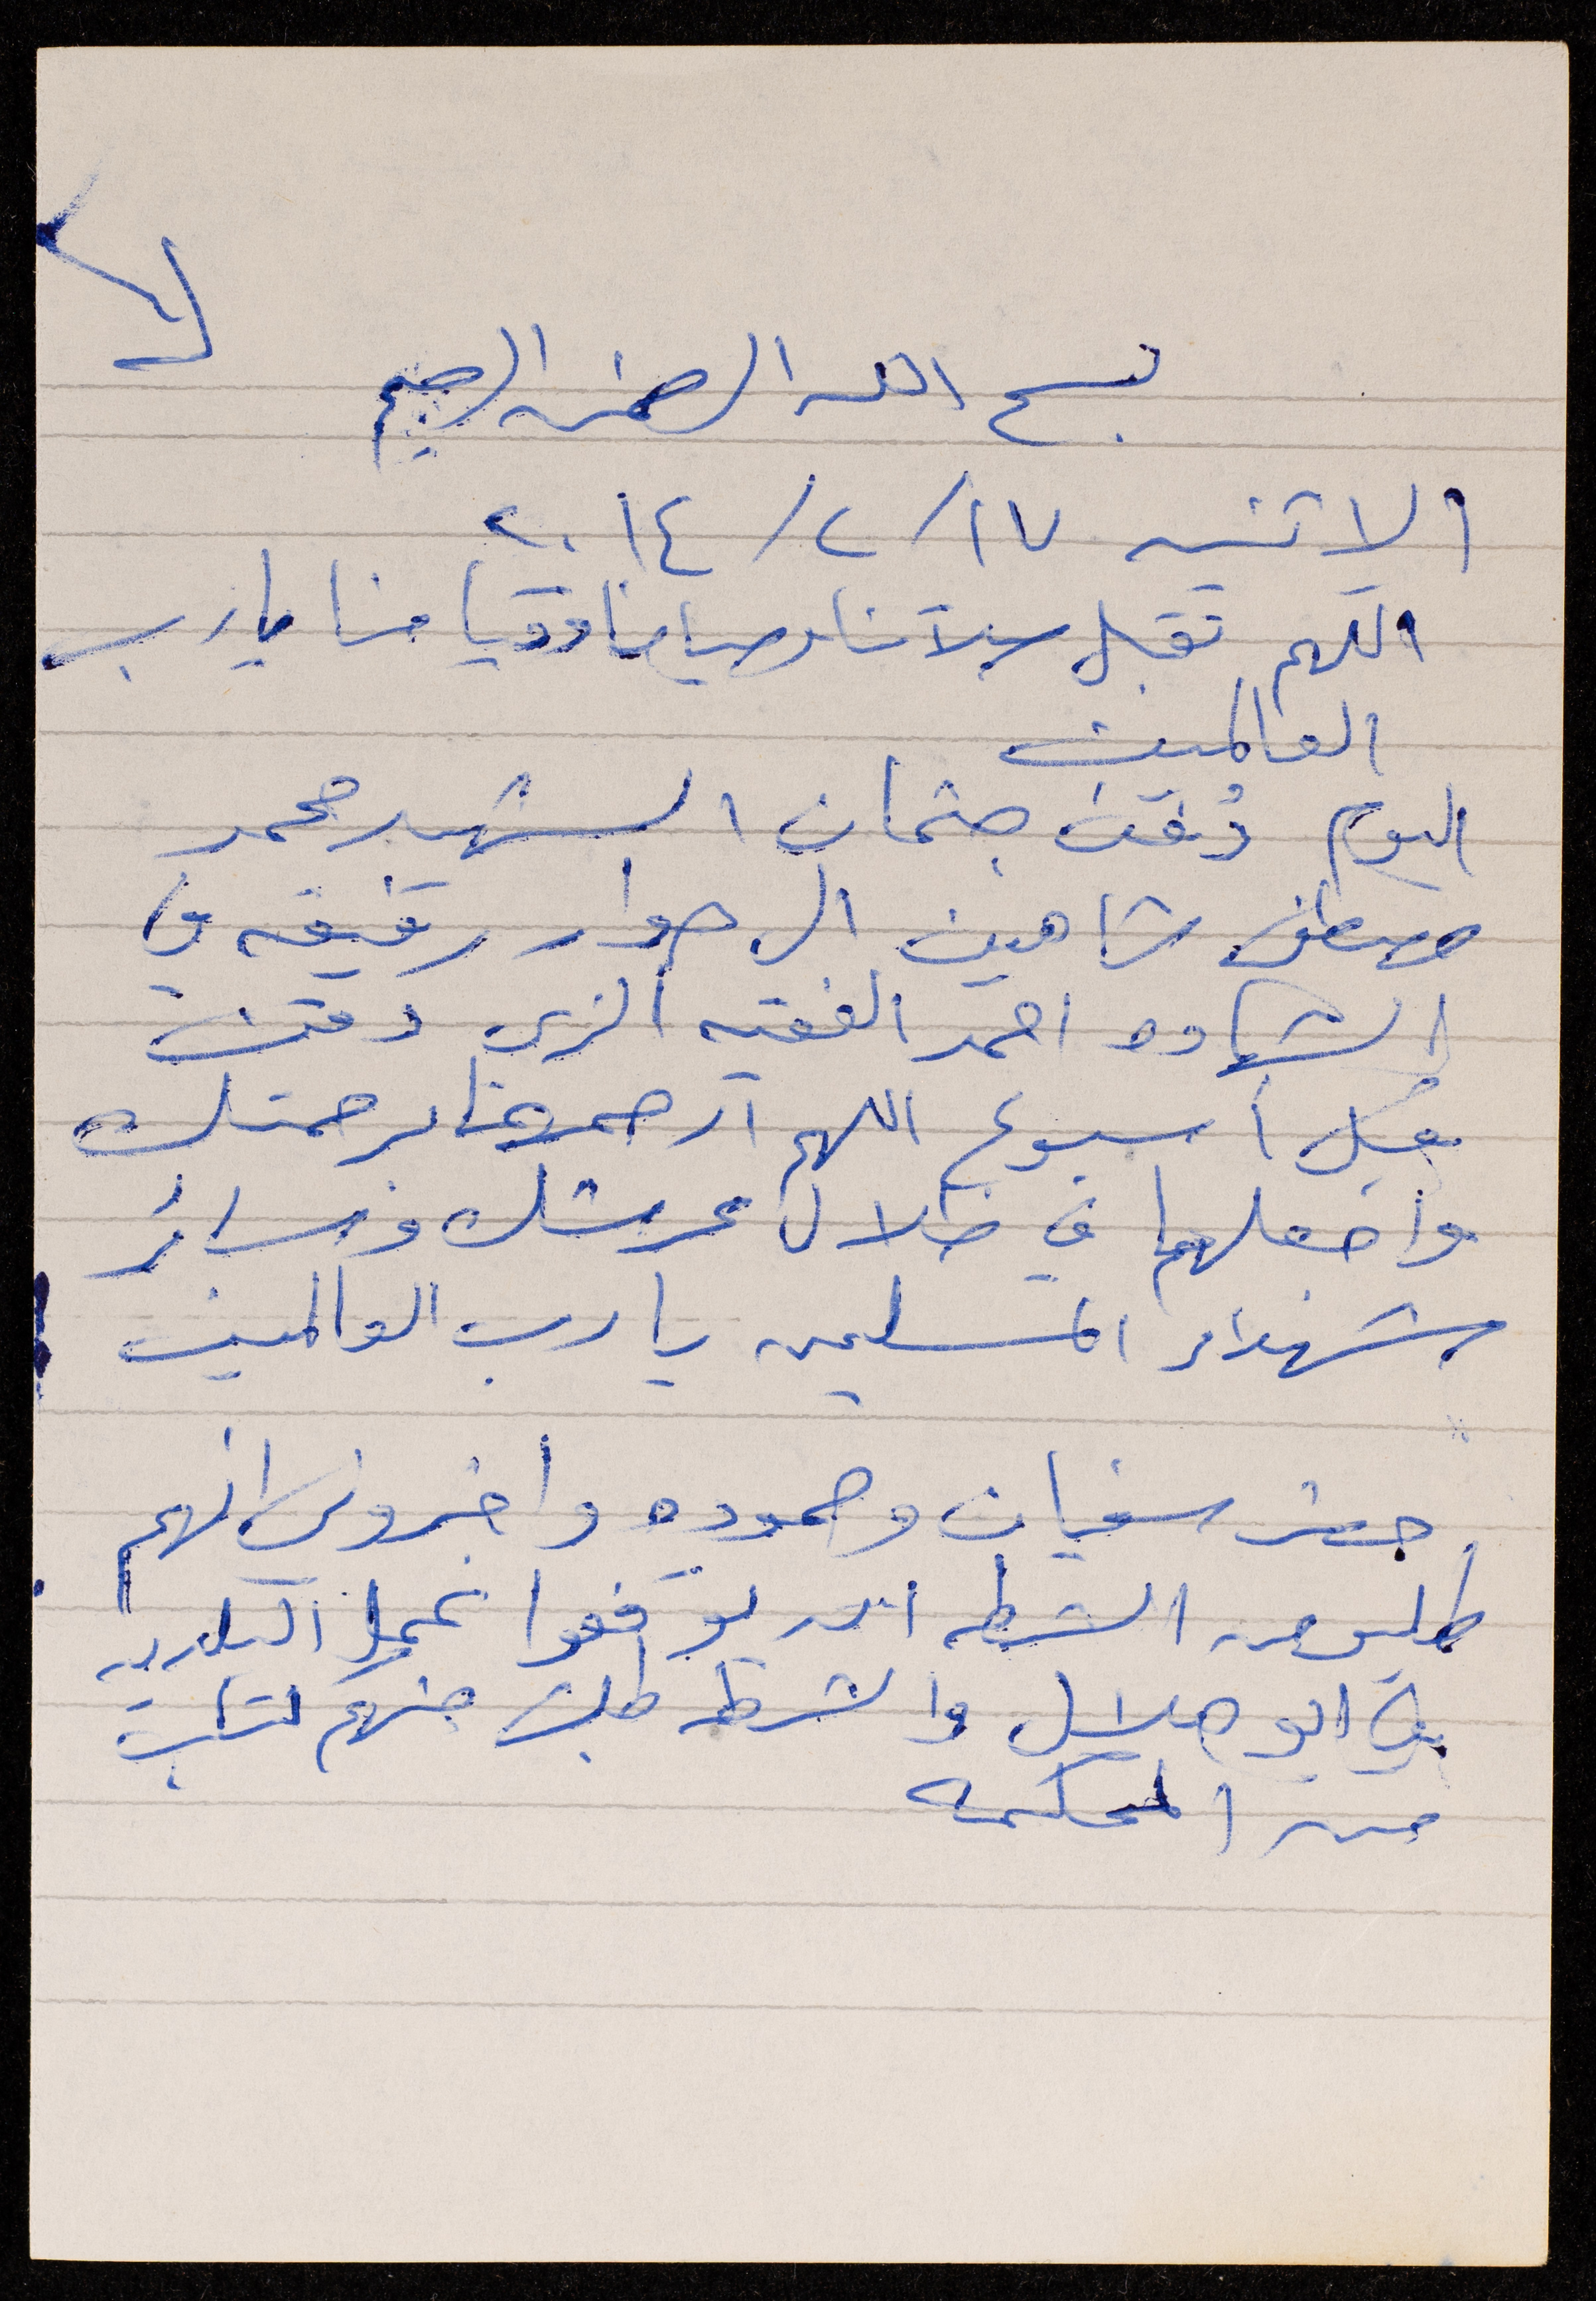 بسم الله الرحمن الرحيم
الاثنين ١٧/٢/٢٠١٤
اللهم تقبل صلاتنا وصيامنا وقيامنا يا رب
العالمين
اليوم دفن جثمان الشهيد محمد
مصطفى شاهين الى جوار رفيقه في
الشهاده احمد الفقيه الذي دفن
قبل أسبوع اللهم ارحمهما برحمتك
واجعلهما في ظلال عرشك وسائر
شهداء المسلمين يا رب العالمين
حضر سفيان وحموده واخبروني انهم
طلبو من الشرطه ان يوقفوا عمل البلديه
في ابو هلال والشرطه طلبت منهم كتاب
من المحكمه